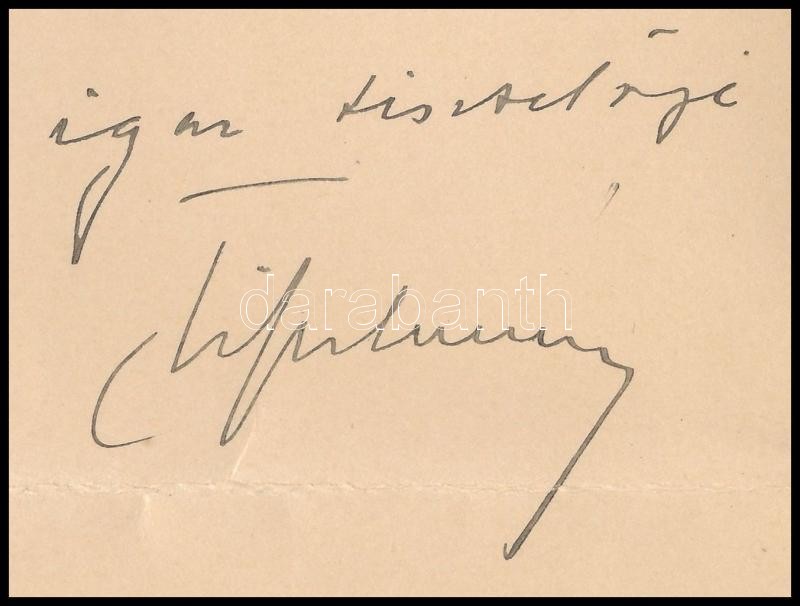 igaz tisztelője
darabanth